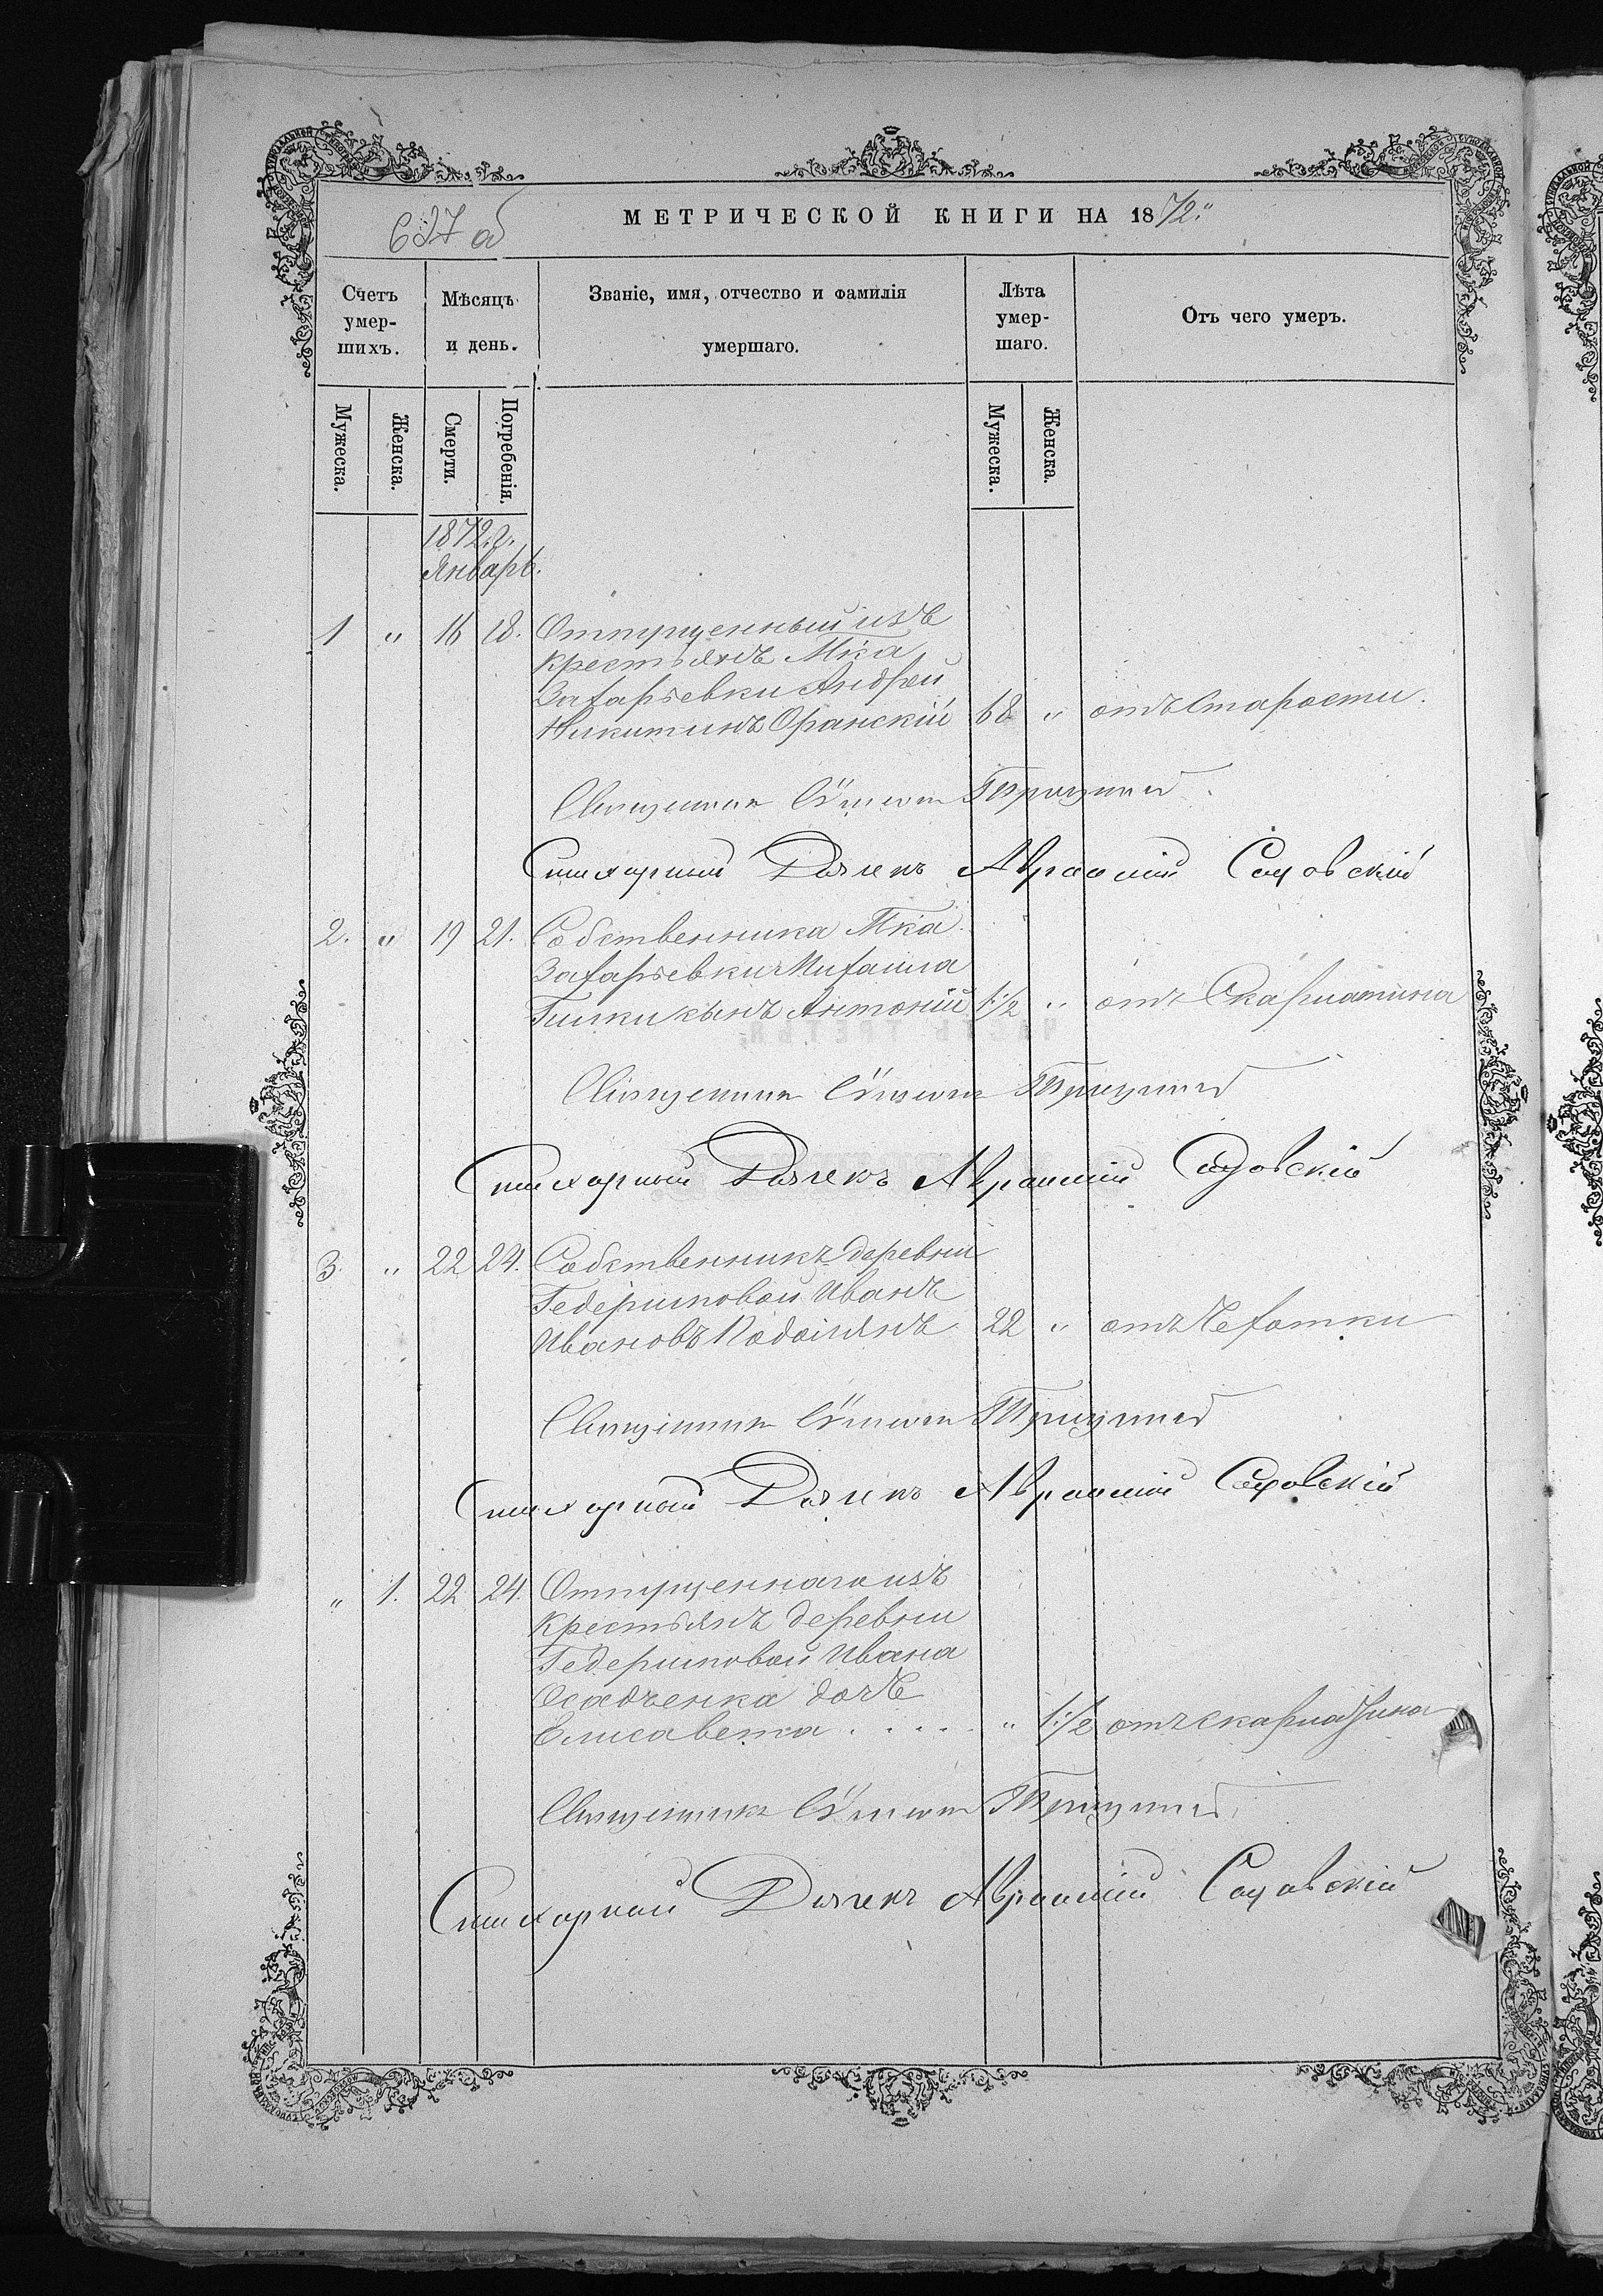 637 об
МЕТРИЧЕСКОЙ КНИГИ НА 1872.
Счетъ умер-шихъ.
Мѣсяцъ и день.
Званіе, имя, отчество и фамилія умершаго.
Лѣта умер-шаго.
Отъ чего умеръ.
Мужеска.
Женска.
Смерти.
Погребенія.
Мужеска.
Женска.
1872. г.
Январь.
1 " 16 18. Отпущенный изъ
крестьянъ Мка
Захарьевки Андрей
Никитинъ Оранскій 68 " отъ Старости.
Священникъ Трицкий
Стихарный Дьячекъ Авраамій Садовскій
2. " 19 21. Собственника Мка
Захарьевки Михаила
сынъ Антоній 1½ " отъ Скарлатина
Священникъ Трицкий
Стихарный Дьячекъ Авраамій Садовскій
3. " 22 24. Собственникъ деревни
Гедеримовой Иванъ
Ивановъ Подолянъ 22 " отъ Чехотки
Священникъ Трицкий
Стихарный Дьячекъ Авраамій Садовскій
" 1. 22 24. Отпущеннаго изъ
Крестьянъ деревни
Гедеримовой Ивана
Осадченка дочь
Елисавета . . . . " 1½ отъ скарлатина
Священникъ Трицкий
Стихарный Дьячекъ Авраамій Садовскій